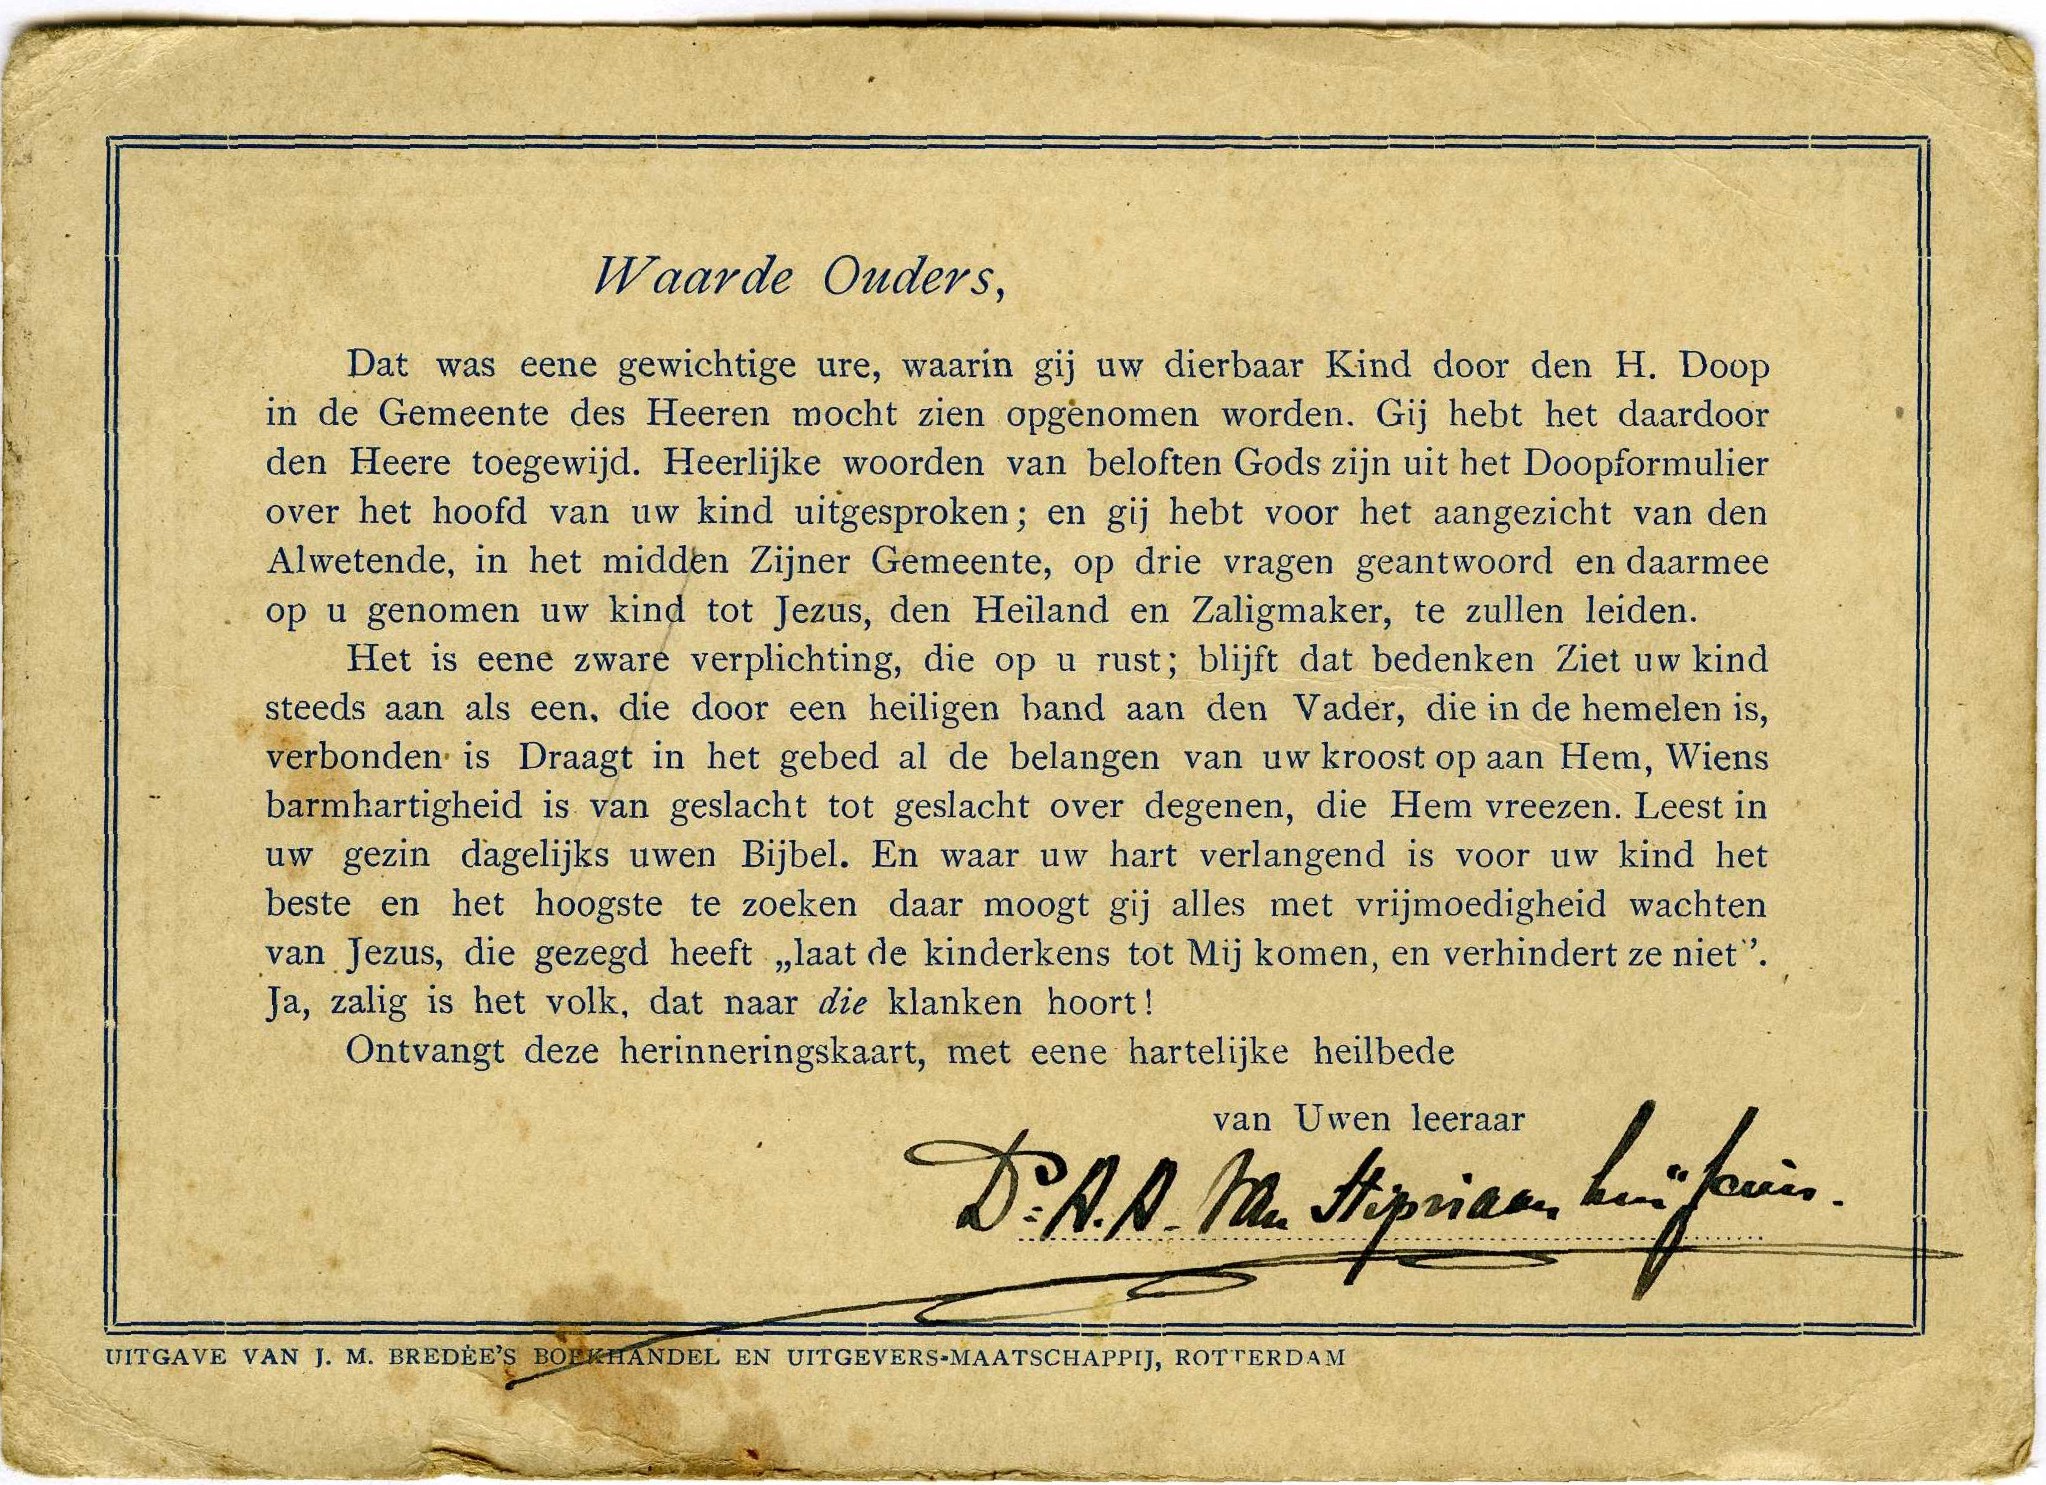 Waarde Ouders,
Dat was eene gewichtige ure, waarin gij uw dierbaar Kind door den H. Doop
in de Gemeente des Heeren mocht zien opgenomen worden. Gij hebt het daardoor
den Heere toegewijd. Heerlijke woorden van beloften Gods zijn uit het Doopformulier
over het hoofd van uw kind uitgesproken; en gij hebt voor het aangezicht van den
Alwetende, in het midden Zijner Gemeente, op drie vragen geantwoord en daarmee
op u genomen uw kind tot Jezus, den Heiland en Zaligmaker, te zullen leiden.
Het is eene zware verplichting, die op u rust; blijft dat bedenken Ziet uw kind
steeds aan als een, die door een heiligen band aan den Vader, die in de hemelen is,
verbonden is Draagt in het gebed al de belangen van uw kroost op aan Hem, Wiens
barmhartigheid is van geslacht tot geslacht over degenen, die Hem vreezen. Leest in
uw gezin dagelijks uwen Bijbel. En waar uw hart verlangend is voor uw kind het
beste en het hoogste te zoeken daar moogt gij alles met vrijmoedigheid wachten
van Jezus, die gezegd heeft „laat de kinderkens tot Mij komen, en verhindert ze niet”.
Ja, zalig is het volk, dat naar die klanken hoort!
Ontvangt deze herinneringskaart, met eene hartelijke heilbede
van Uwen leeraar
Ds. A. A. Van Stipriaan Luïscius.
UITGAVE VAN J. M. BREDÉE'S BOEKHANDEL EN UITGEVERS-MAATSCHAPPIJ, ROTTERDAM